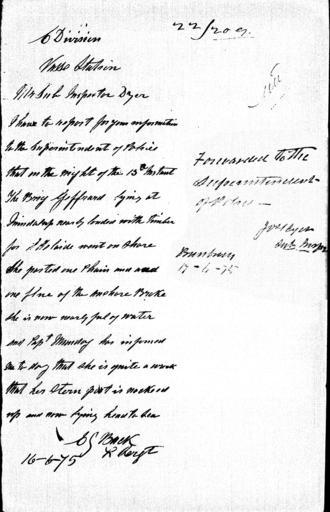 22/209
6 Division
Vasse Station
Mr Sub Inspector Dyer
I have to report for your information
to the Superintendent of Police
that on the night of the 13th Instant
The Brig Geffrard lying at
Quindalup nearly loaded with timber
for Adelaide went on shore
She parted one Chain and
one fluke of the Anchore Broke
she is now nearly full of water
and Capt Munday has informed
me to day that she is quite a wreck
that her Stern post is nocked
up and now lying head to Sea
Back
Sergt
16-6-75
Forwarded to the
Superintendent
of Police
Dyer
Sub Inspr
Bunbury
17-6-75